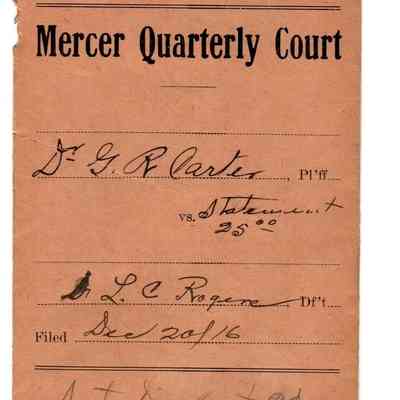 Mercer Quarterly Court
Dr G. R Carter, Pl'ff
vs. Statement
25 00
Dr L. C Rogers Df't.
Filed Dec 20/16